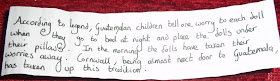 According to legend, Guatemalan children tell one worry to each doll
when they go to bed at night and place the dolls under
their pillows. In the morning the dolls have taken their
worries away. Cornwall, being almost next door to Guatemala,
has taken up this tradition.